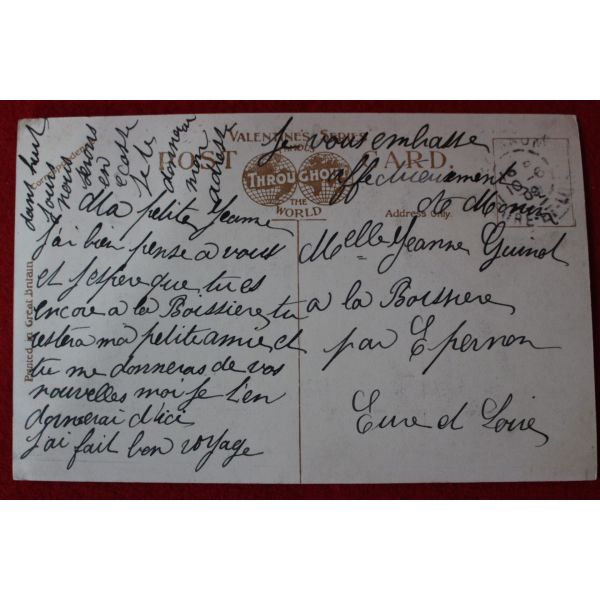 dans huit
jours
nous
serons
en
Ecosse
je te
donnerai
mon
adresse
Correspondence
VALENTINE'S SERIES
FAMOUS
POST CARD.
THROUGHOUT
THE WORLD
Address Only.
Printed in Great Britain
Ma petite Jeanne
j'ai bien pense a vous
et j'espere que tu es
encore a la Boissiere, tu
restera ma petite amie et
tu me donneras de vos
nouvelles moi je t'en
donnerai d'ici
j'ai fait bon voyage
Je vous embrasse
affectueusement
Melle Jeanne Guinot
a la Boissiere
par Epernon
Eure et Loire